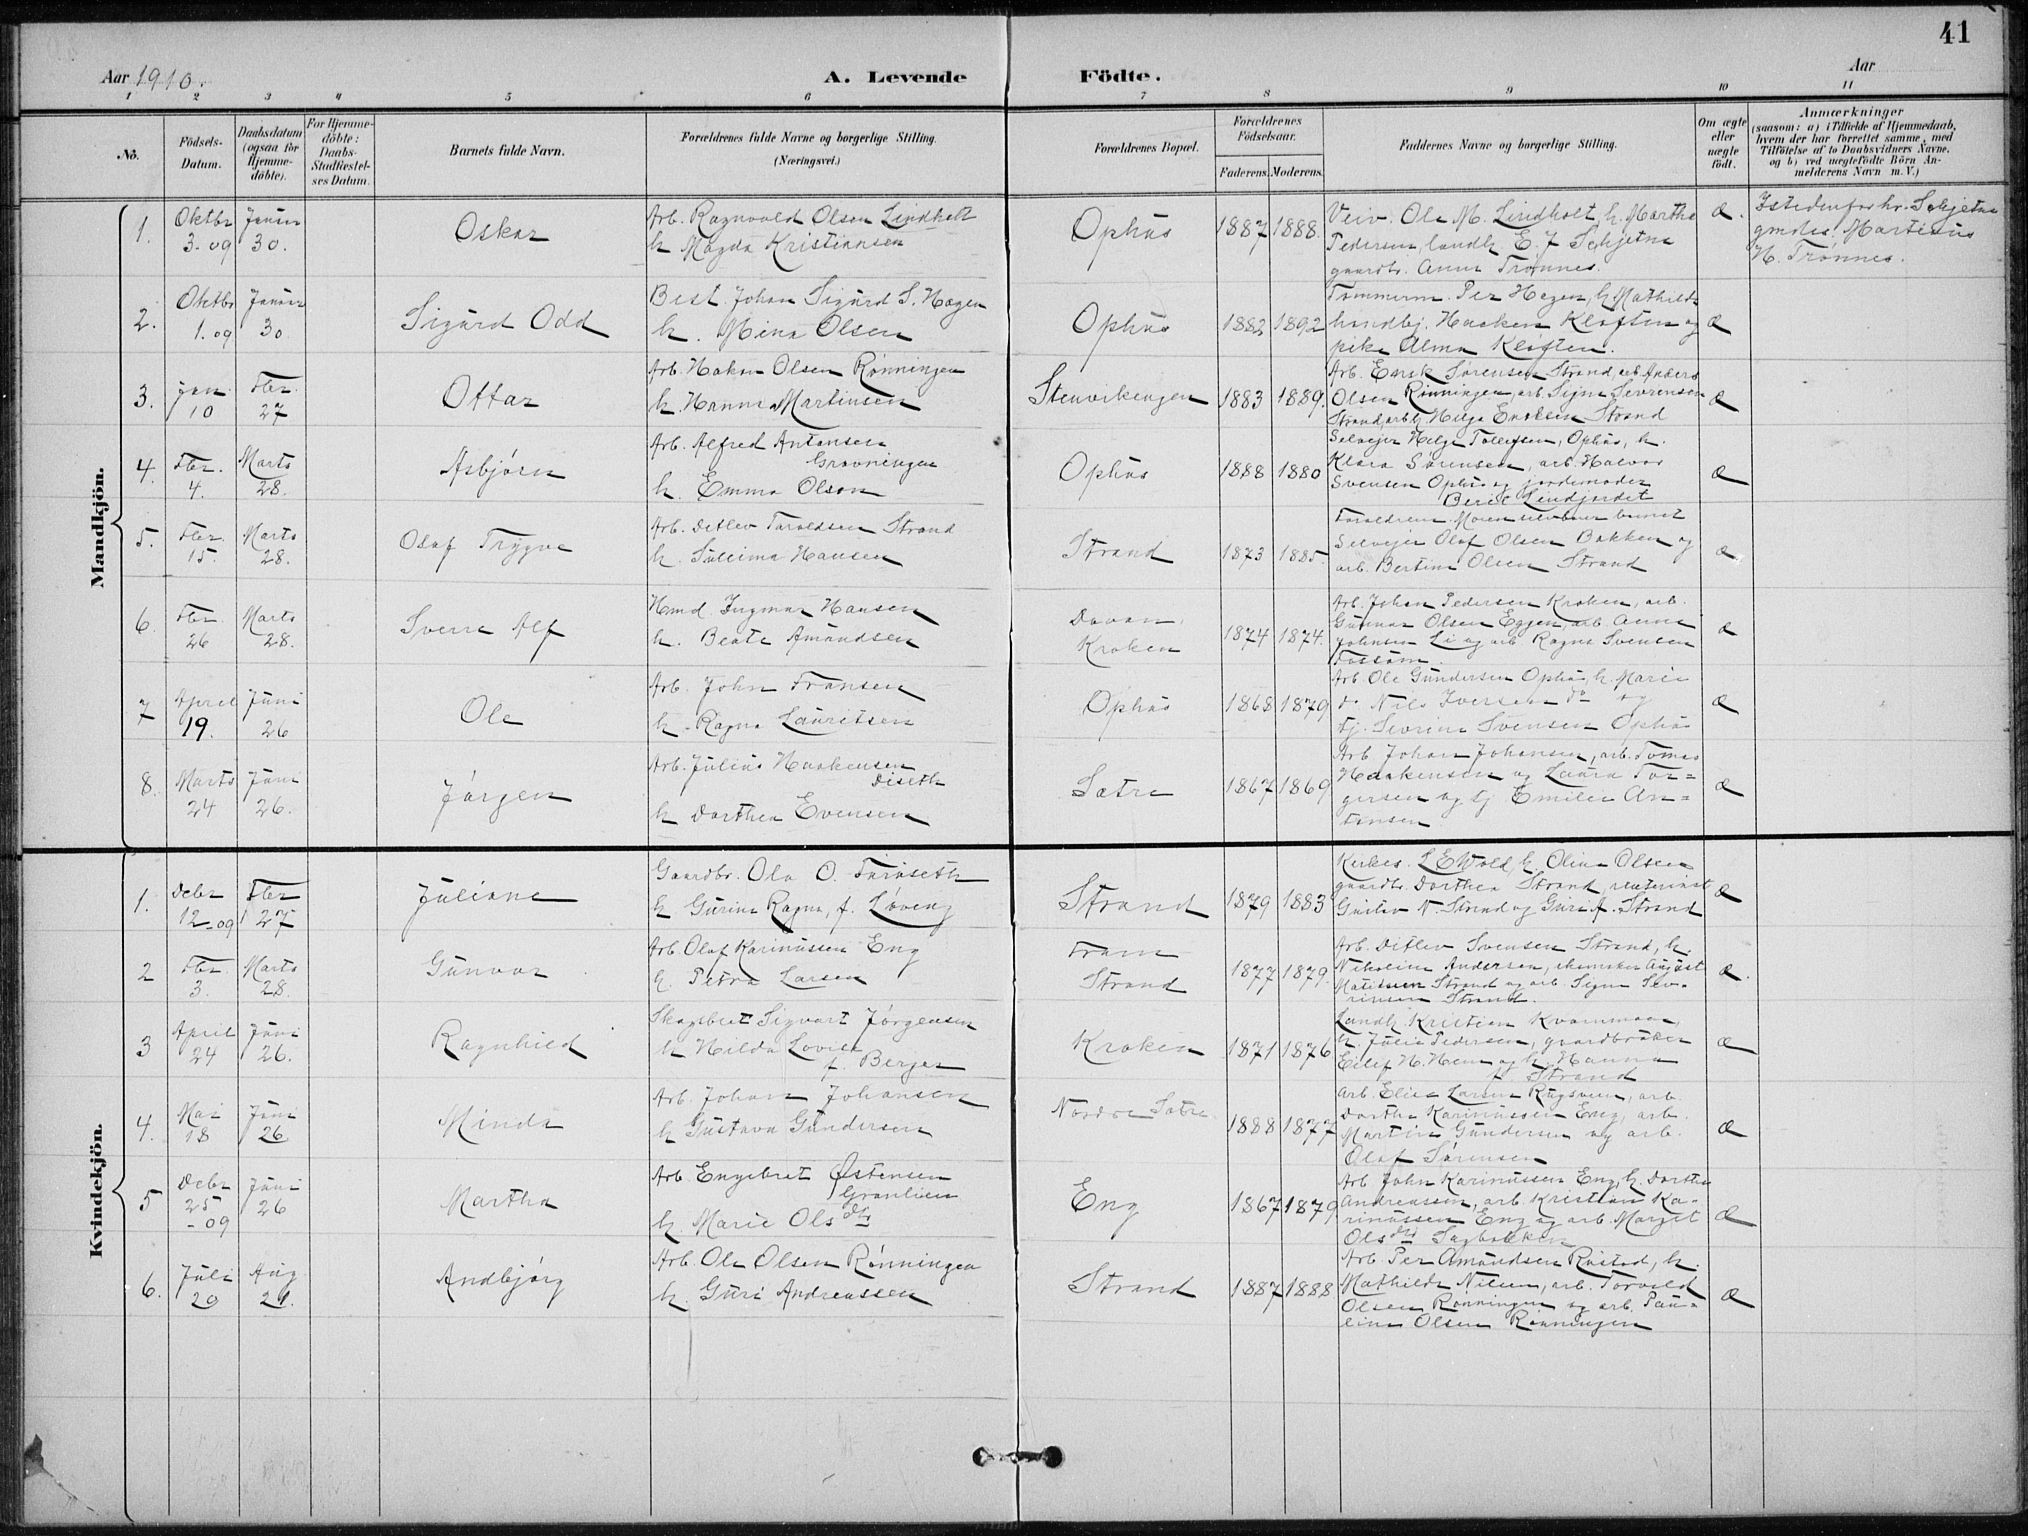 41
Aar 1910.
A. Levende Födte.
Aar
1 2 3 4 5 6 7 8 9 10 11
No.
Födsels-Datum.
Daabsdatum (ogsaa for Hjemme-döbte).
For Hjemme-döbte: Daabs-Stadfæstel-ses Datum.
Barnets fulde Navn.
Forældrenes fulde Navne og borgerlige Stilling. (Næringsvei.)
Forældrenes Bopæl.
Forældrenes Födselsaar.
Faderens. Moderens.
Faddernes Navne og borgerlige Stilling.
Om ægte eller uægte födt.
Anmærkninger
(saasom: a) i Tilfælde af Hjemmedaab, hvem der har forrettet samme, med Tilföielse af to Daabsvidners Navne, og b) ved uægtefödte Börn An-melderens Navn m. V.)
Mandkjön.
1. Oktbr 3-09 Januar 30.
Oskar
Arb. Ragnvald Olsen Lindholt
h Magda Kristiansen
Ophus 1887 1888.
Veiv. Ole M. Lindholt, h. Martha
Pedersen, landh. E. J Schjetne
gaardbr. Anna Trønnes.
Æ.
Istedenfor hr. Schjetne
gmdes. Martinus
H. Trønnes.
2. Oktbr 1. 09 Januar 30
Sigurd Odd
Best. Johan Sigurd S. Hagen
h. Mina Olsen
Ophus 1882 1892
Tømmerm. Per Hegen, h. Mathilde
handbj. Haaken Kløften og
pike Alma Kløften.
Æ
3. Jan. 10 Fbr. 27
Ottar
Arb. Hakon Olsen Rønningen
h. Hanna Martinsen
Stenvikengen 1883 1889.
Arb. Enok Sørensen Strand, arb. Anders
Olsen Rønningen, arb. Signe Severensen
Strand, arb. Helga Enoksen Strand
Æ
4. Fbr. 4. Marts 28.
Asbjørn
Arb. Alfred Antonsen
Grønningen
h. Emma Olson
Ophus 1888 1880
Selveier Helge Tollefsen, Ophus, h.
Klara Sørensen, arb. Halvor
Svensen Ophus og jordemoder
Berit Lindjordet
Æ
5. Fbr. 15. Marts 28.
Olaf Trygve
Arb. Ditlev Taraldsen Strand
h. Sulleima Hansen
Strand 1873 1885.
Forældrene. Moren selv bærer barnet
Selveier Olof Olsen Bakken og
arb. Bertine Olsen Strand
Æ
6. Fbr. 26 Marts 28.
Sverre Alf
Hmd. Ingmar Hansen
h. Beate Amundsen
Kroken 1874 1874.
Arb. Johan Pedersen Kroken, arb.
Gunnar Olsen Eggen, arb. Anne
Johnsen Li og arb. Ragna Svensen
Fossum.
Æ
7 April 19. Juni 26
Ole
Arb. John Fransen
h. Ragna Lauritsen
Ophus 1868 1879
Arb Ole Gundersen Ophus, h. Marie
do Nils Iversen do og
tj. Severine Svensen Ophus
Æ
8. Marts 24 Juni 26.
Jørgen
Arb. Julius Haakensen
Diseth
h Dorthea Evensen
Sætre 1867 1869
Arb Johan Johansen, arb. Tomas
Haakensen og Laura Tor-
gersen og tj Emilie An-
tonsen
Æ
Kvindekjön.
1. Debr 12-09 Fbr 27
Juliane
Gaardbr. Ola O. Furuseth
h Gurine Ragna, f. Løveng
Strand 1879 1883
Kirkes. L E Wold, h. Olina Olsen
gaardbr. Dorthea Strand, rentenist
Gustav N. Strand og Guri A. Strand
Æ
2 Fbr. 3. Marts 28.
Gunvor
Arb Olaf Karinussen Eng
h. Petra Larsen
Fram
Strand 1877 1879.
Arb. Ditlev Svensen Strand, h.
Nikoline Andersen, skomaker August
Matissen Strand og arb. Signe Sev-
rinsen Strand.
Æ.
3 April 24 Juni 26.
Ragnhild
Skogsbet Sigvart Jørgensen
h Hilda Lovise
f. Berger
Kroken 1871 1876
Landh. Kristian Kvammen,
h. Julia Pedersen, gaardbruker
Eilef H. Hem og h. Hanna
f. Strand
Æ
4. Mai 18 Juni 26.
Minda
Arb. Johan Johansen
h Gustava Gundersen
Nordre Sætre 1888 1877
Arb. Elias Larsen Rugsveen, arb.
Dorthe Karinussen Eng, arb.
Martin Gundersen og arb.
Olaf Sørensen
Æ
5 Debr 25 -09 Juni 26
Martha
Arb Engebret Østensen
Granlien
h. Marie Olsdtr
Eng 1867 1879
Arb John Karinussen Eng, h. Dorthe
Andreassen, arb Kristian Ka-
rinussen Eng og arb. Margit
Olsdtr Sagbakken
Æ
6. Juli 20 Aug 21.
Andbjørg
Arb. Ole Olsen Rønningen
h. Guri Andreassen
Strand 1887 1888
Arb Per Amundsen Rustad, h.
Mathilde Nilsen, arb. Torvald
Olsen Rønningen og arb. Pau-
line Olsen Rønningen
Æ